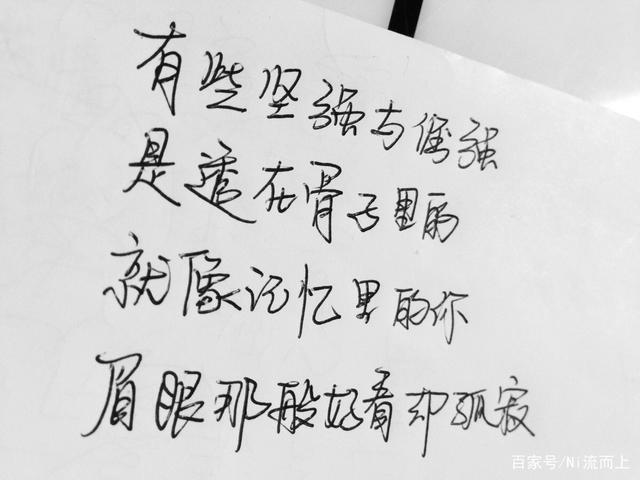 有些坚强与倔强
是透在骨子里的
就像记忆里的你
眉眼那般好看却孤寂
百家号/Ni流而上